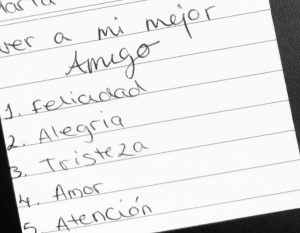 ver a mi mejor
Amigo
1. Felicidad
2. Alegria
3. Tristeza
4. Amor
5. Atención